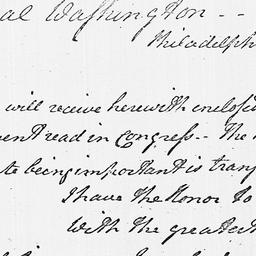 al Washington --
Philadelph
will receive herewith enclosi
ent read in Congress -- The
te being important is trans
I have the Honor to
With the greatest